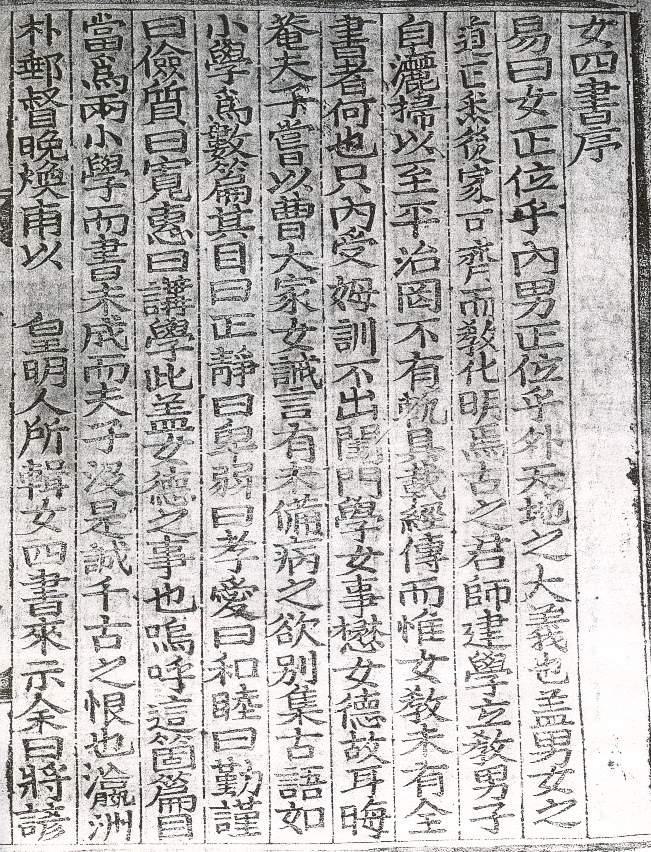 女四書序
易曰女正位乎內男正位乎外天地之大義也盖男女之
道正然後家可齊而敎化明焉古之君師建學立敎男子
自灑掃以至平治罔不有軌具載經傳而惟女敎未有全
書者何也只內受姆訓不出閨門學女事懋女德故耳晦
菴夫子甞以曹大家女誡言有未備病之欲別集古語如
小學爲數篇其目曰正靜曰卑弱曰孝愛曰和睦曰勤謹
曰儉質曰寬惠曰講學此盖女德之事也嗚呼這箇篇目
當爲兩小學而書未成而夫子沒是誠千古之恨也瀛洲
朴郵督晩煥甫以 皇明人所輯女四書來示余曰將諺